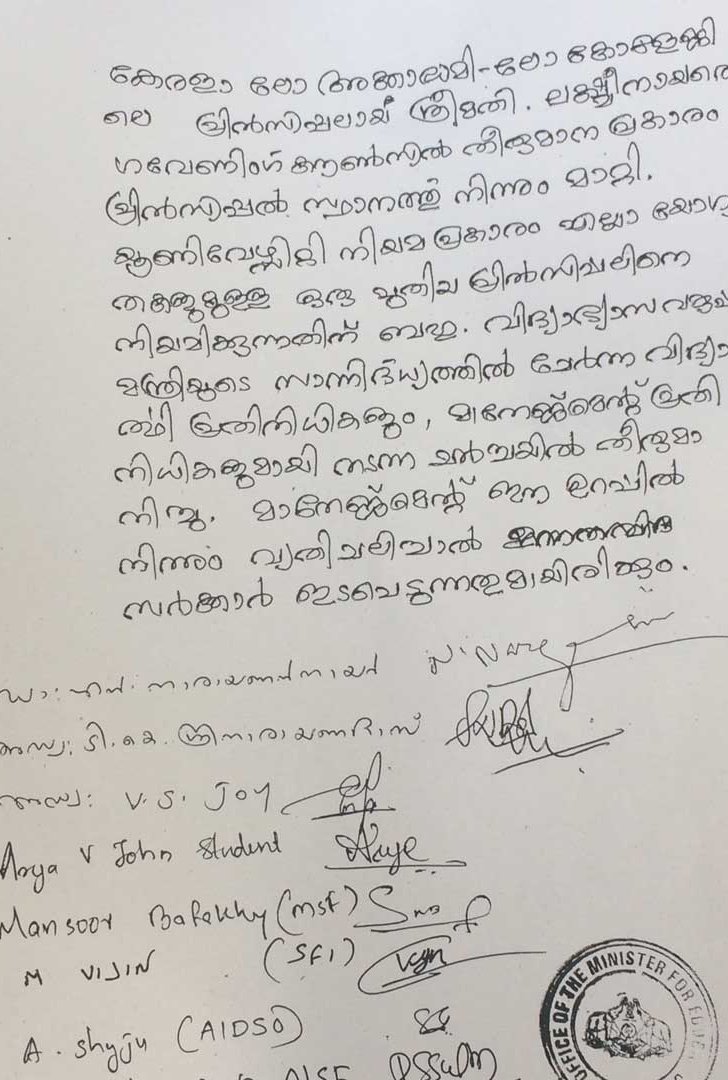 കേരളാ ലോ അക്കാദമി-ലോ കോളേജി
ലെ പ്രിൻസിപ്പലായ് ശ്രീമതി. ലക്ഷ്മീനായരെ
ഗവേണിംഗ് കൗൺസിൽ തീരുമാന പ്രകാരം
പ്രിൻസിപ്പൽ സ്ഥാനത്ത് നിന്നും മാറ്റി.
യൂണിവേഴ്സിറ്റി നിയമ പ്രകാരം എല്ലാ യോഗ്യ
തകളുമുള്ള ഒരു പുതിയ പ്രിൻസിപ്പലിനെ
നിയമിക്കുന്നതിന് ബഹു. വിദ്യാഭ്യാസ വകുപ്പ്
മന്ത്രിയുടെ സാന്നിദ്ധ്യത്തിൽ ചേർന്ന വിദ്യാ
ർത്ഥി പ്രതിനിധികളും, മാനേജ്മെന്റ് പ്രതി
നിധികളുമായി നടന്ന ചർച്ചയിൽ തീരുമാ
നിച്ചു. മാനേജ്മെന്റ് ഈ ഉറപ്പിൽ
നിന്നും വ്യതിചലിച്ചാൽ
സർക്കാർ ഇടപെടുന്നതുമായിരിക്കും.
ഡോ: എൻ. നാരായണൻ നായർ
അഡ്വ: ടി.കെ. ശ്രീനാരായണദാസ്
അഡ്വ: V.S. JOY
Arya V John Student
Mansoor Bafakhy (MSF)
M VIJIN (SFI)
A. Shyju (AIDSO)
AISF
OFFICE OF THE MINISTER FOR